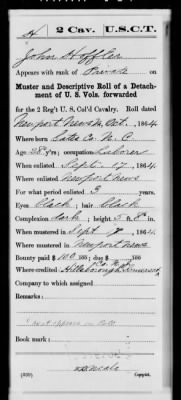 H | 2 Cav. | U.S.C.T.
John Hoffler
Appears with rank of Private on
Muster and Descriptive Roll of a Detach-
ment of U. S. Vols. forwarded
for the 2 Reg't U. S. Col'd Cavalry. Roll dated
Newport News Va Oct. , 1864.
Where born Gates Co. N. C.
Age 28 y'rs; occupation Laborer
When enlisted Sept. 17, 1864.
Where enlisted Newport News
For what period enlisted 3 years.
Eyes black ; hair black
Complexion dark ; height 5 ft. 8 in.
When mustered in Sept 17, 1864.
Where mustered in Newport News
Bounty paid $ 100 ; due $ 100
Where credited Hillsborough, Somerset
Co. N. J.
Company to which assigned
Remarks:
Book mark:
(339) Copyist.